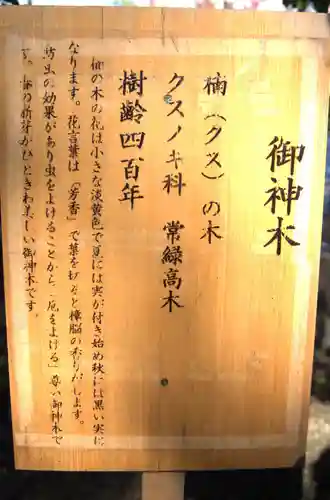 御神木
楠(クス)の木
クスノキ科 常緑高木
樹齢四百年
楠の木の花は小さな淡黄色で夏には実が付き始め秋には黒い実に
なります。花言葉は「芳香」で葉をもむと樟脳の香りがします。
防虫の効果があり虫をよけることから「厄をよける」尊い御神木で
す。春の新芽がひときわ美しい御神木です。